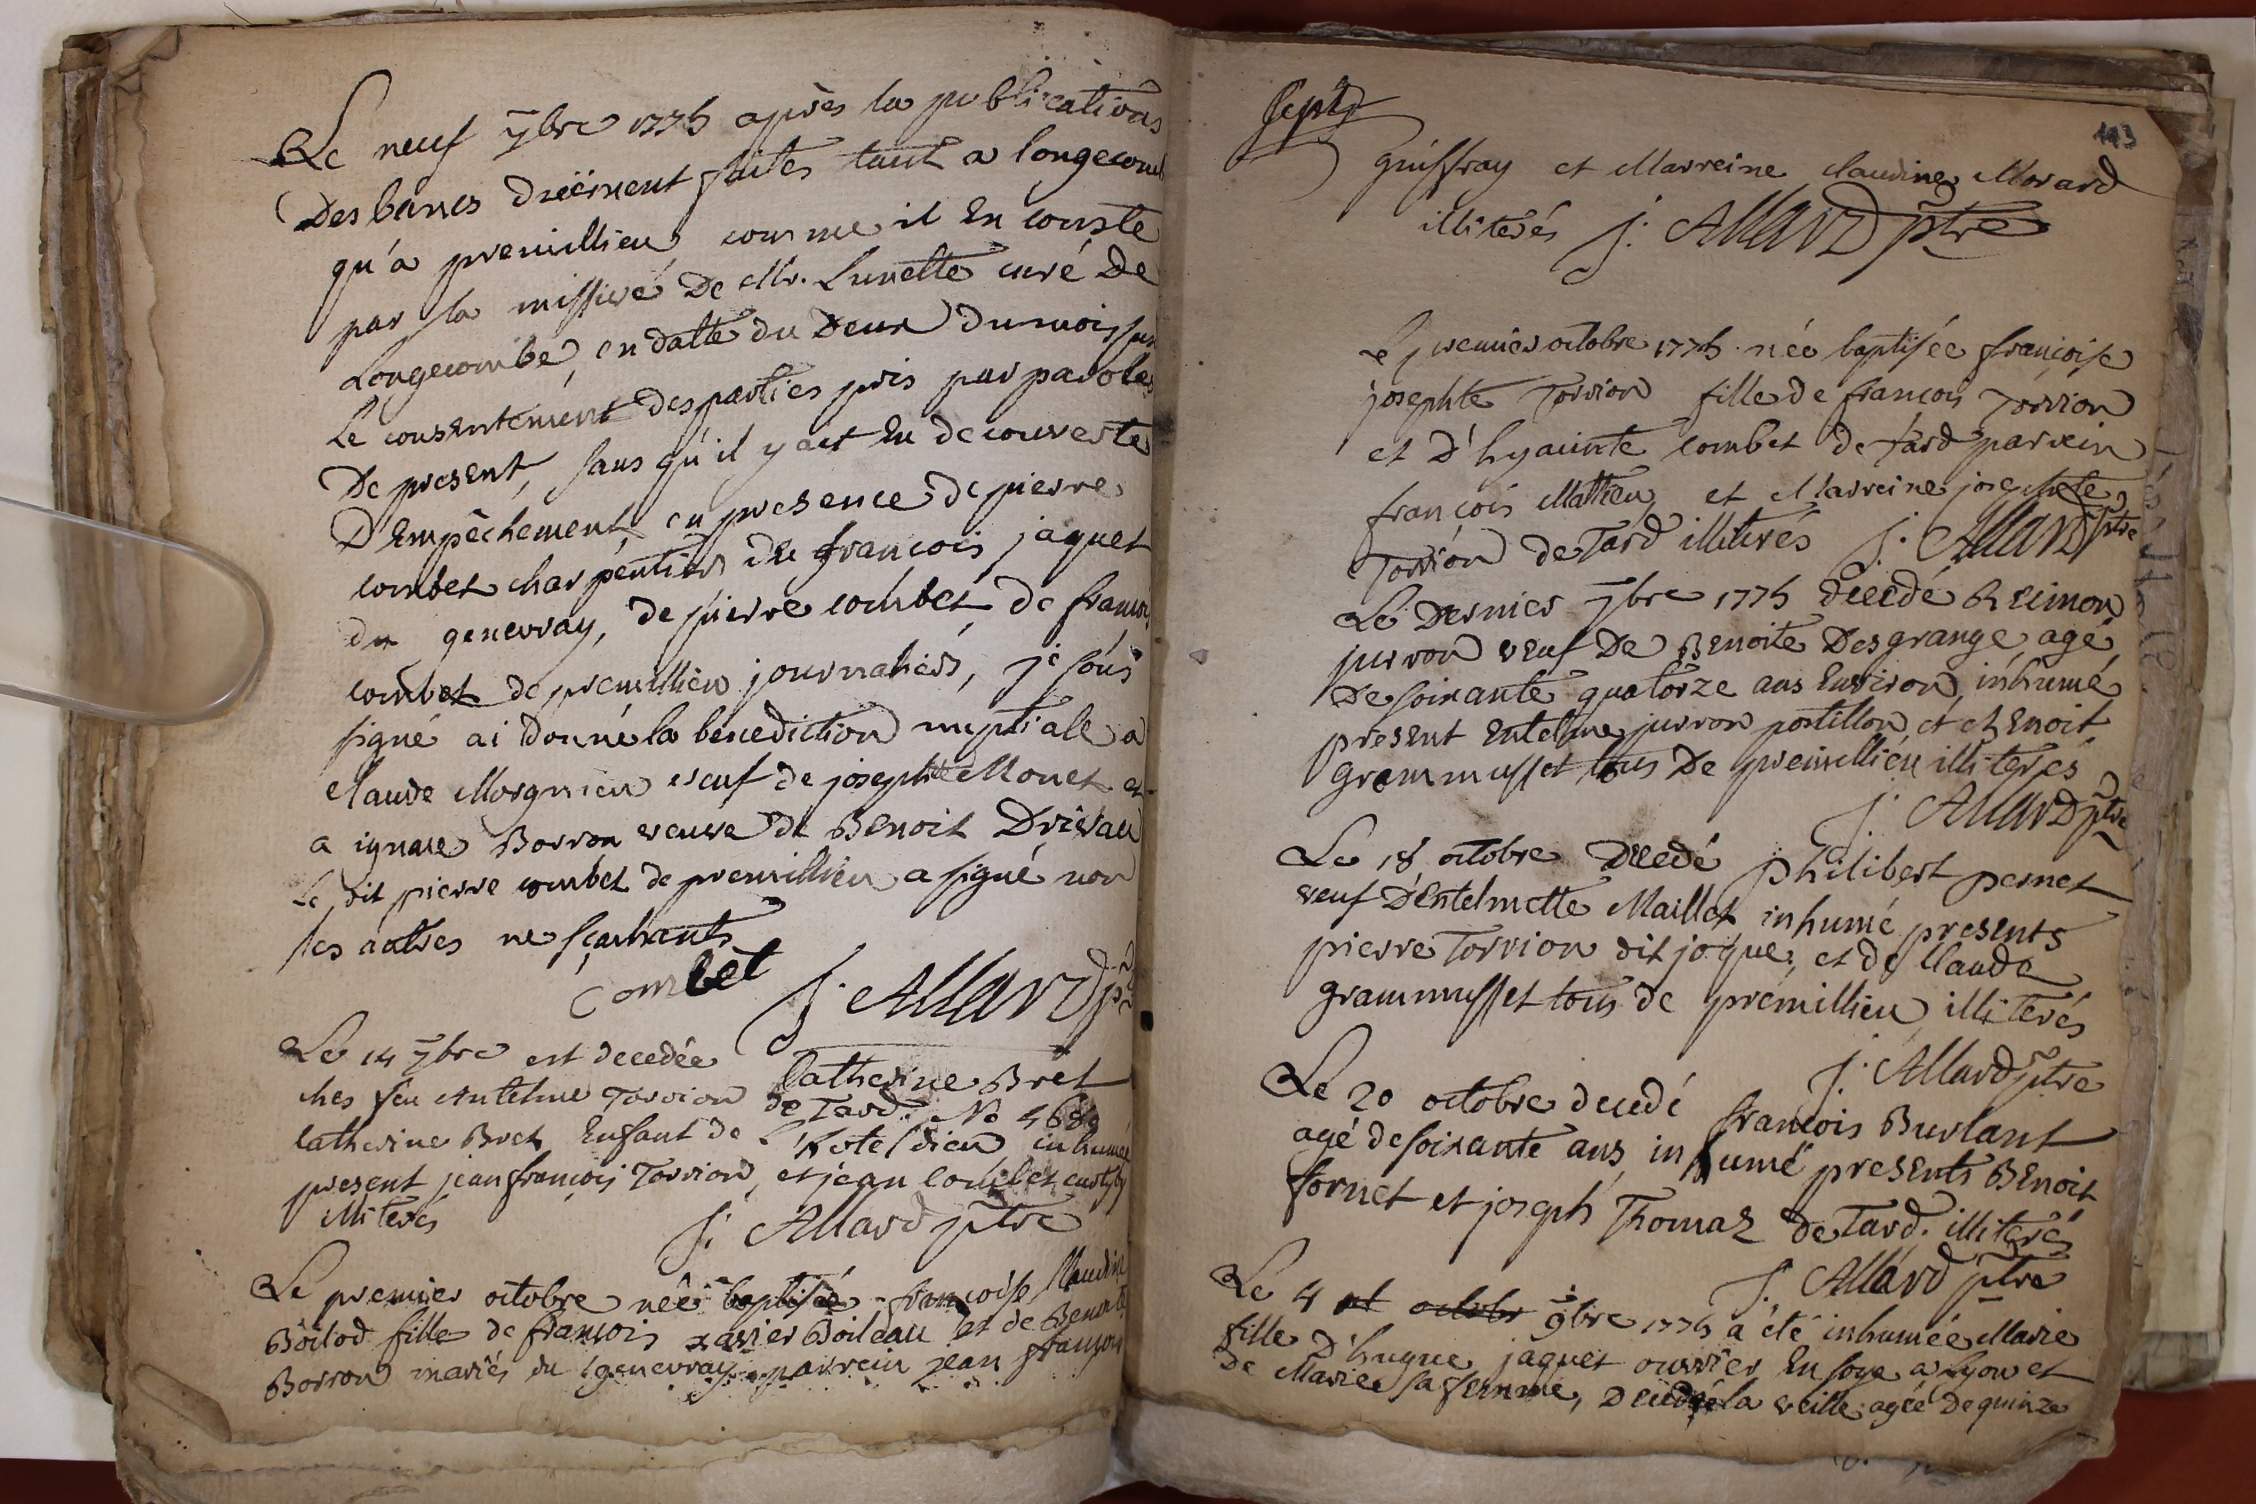 Le neuf 7bre 1775 après la publications
Des bancs dûëment faites tant a longecomb
qu'a premillieu comme il En conste
par la missive De Mr. Lunette curé De
Longecombe, en datte du Deux du mois sur
Le consentement des parties pris par paroles
De present, sans qu'il y ait Eu de couverte
D'Empêchement, en presence de pierre
combet charpentier de françois jaquet
du genevray, de pierre combet, de françoi
combet de premillieu journaliers, je sous
signé ai donné la benediction nuptiale a
claude Morgnieu veuf de josephte Monet et
a ignace Borron veuve de Benoit Drivau
Le dit pierre combet de premillieu a signé non
les autres ne sçachants
Combet J: Allard p
Le 14 7bre est decedée Catherine Bret
ches feu Antelme Torrion de Tard. No 4689
catherine Bret Enfant de L'hotel dieu inhumée
present jean françois Torrion, et jean combet
illiterés J: Allard ptre
Le premier octobre née baptisée françoise Claudine
Boilod fille de françois xavier Boileau et de Benoite
Borron mariés du genevray parrein jean françois
Sept
113
Guiffray et Marreine claudine Morard
illiterés J: Allard ptre
Le premier octobre 1775 née baptisée françoise
josephte Torrion fille de françois Torrion
et D'hyacinte combet de tard parrein
françois Mathieu, et Marreine josephte
Torrion de Tard illiterés J: Allard ptre
Le Dernier 7bre 1775 decedé Reimon
jurron veuf De Benoite Desgrange agé
De soixante quatorze ans Environ inhumé
present Entelme jurron postillon, et Benoit
grammusset tous De premillieu illiterés
J: Allard ptre
Le 18 octobre Decedé philibert pernet
veuf D'Entelmette Maillet inhumé presents
pierre Torrion dit joque, et de Claude
grammusset tous de premillieu illiterés
J: Allard ptre
Le 20 octobre decedé françois Burlant
agé de soixante ans inhumé presents Benoit
fornet et joseph Thomas de Tard. illiterés
J: Allard ptre
Le 4 et octobr 9bre 1775 a été inhumée Marie
fille D'hugue jaquet ouvrier En soye a Lyon et
De Marie sa femme, Decedée la veille agée De quinze